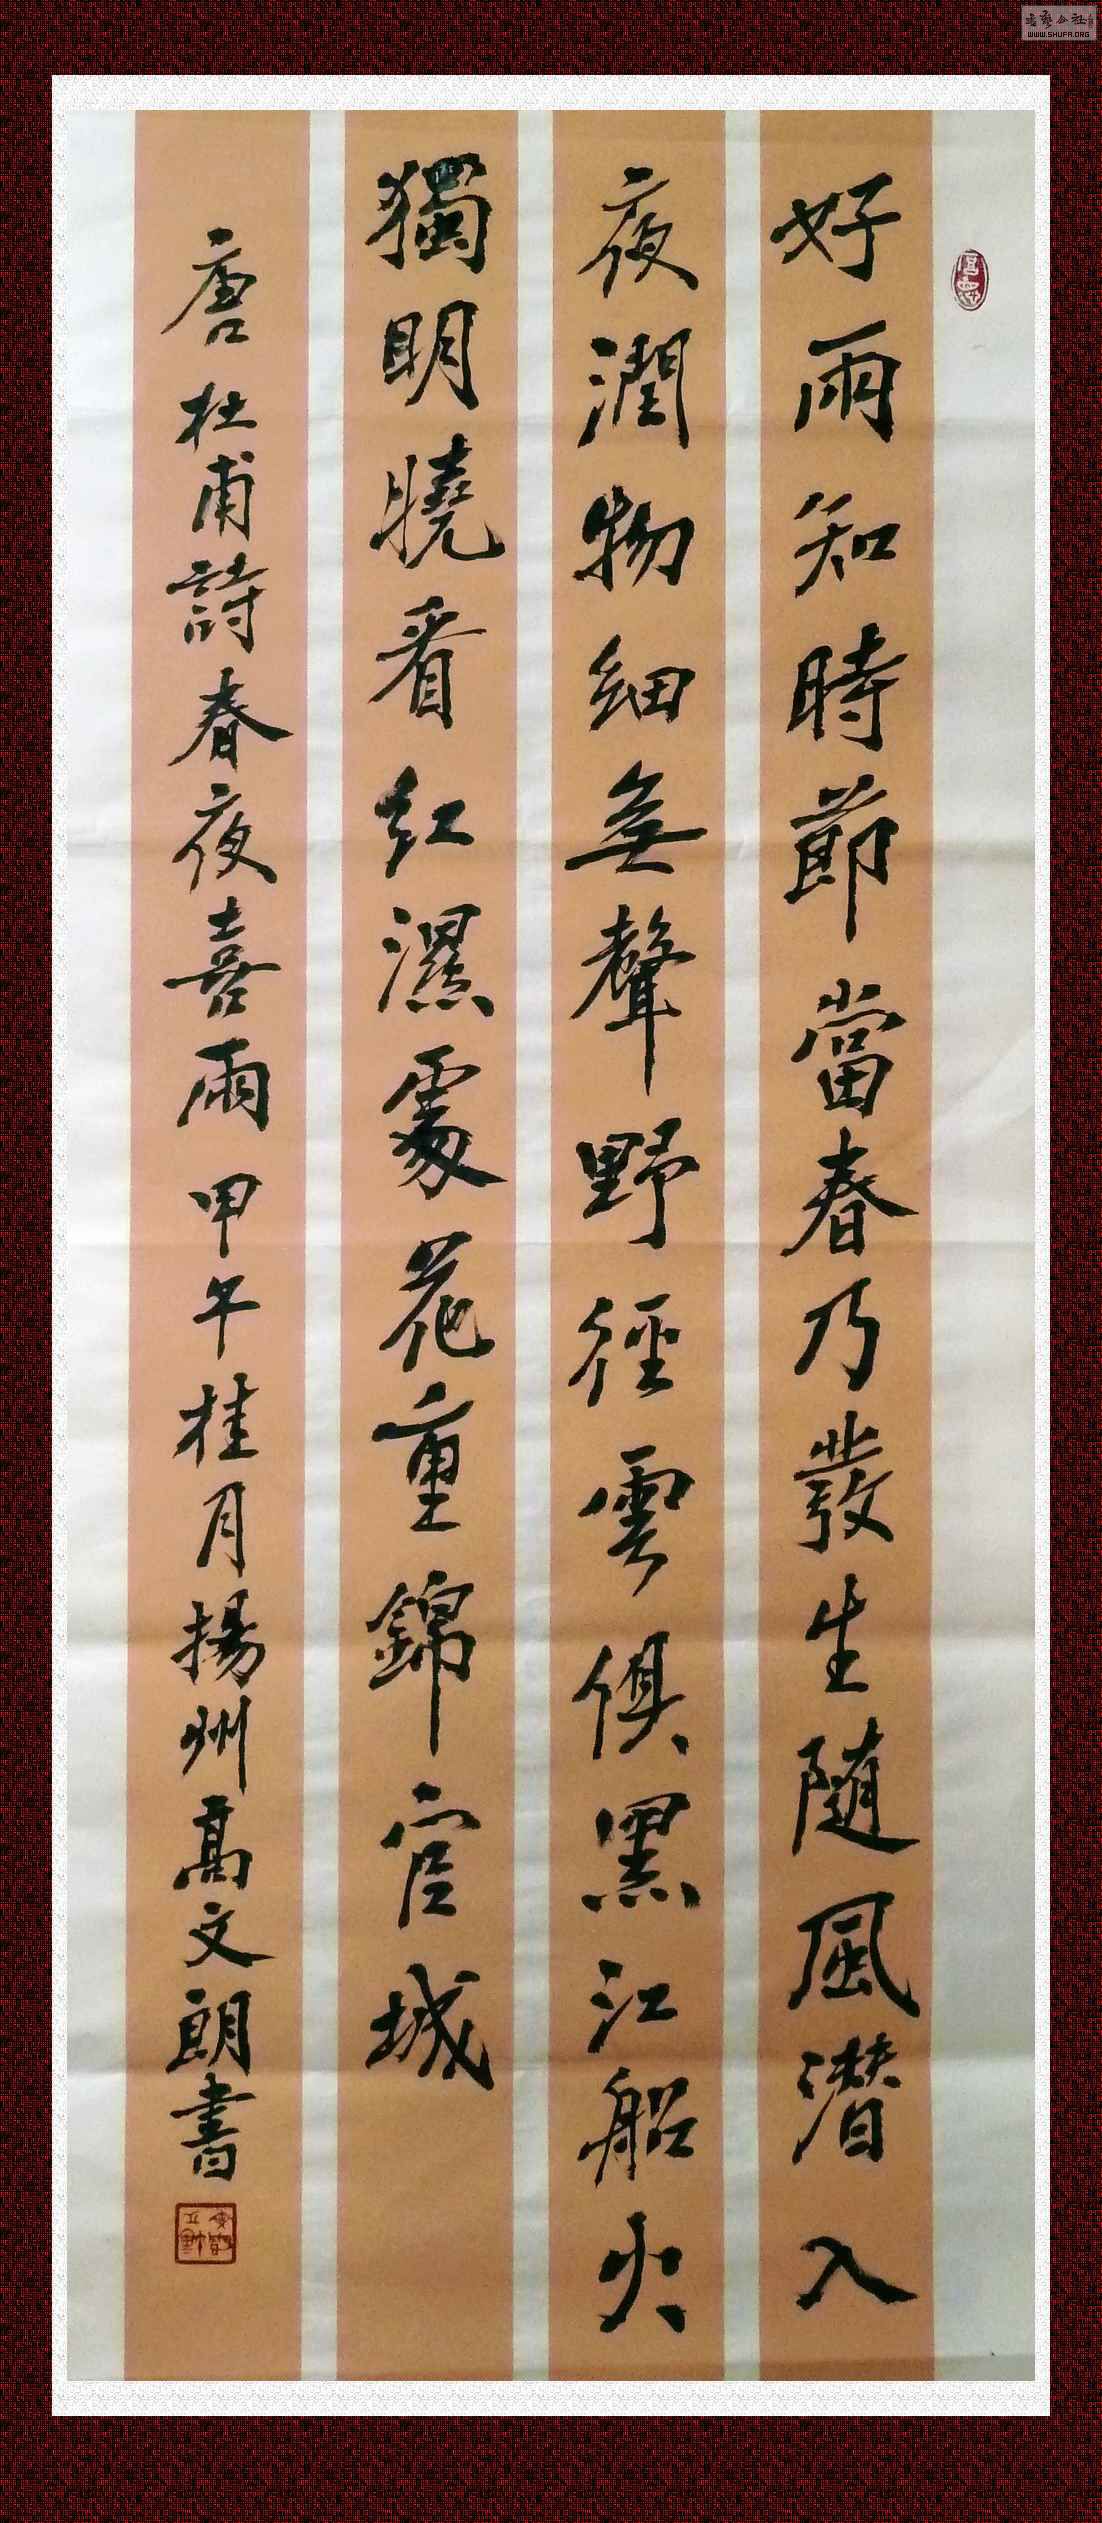 好雨知時節當春乃發生随風潛入
夜潤物細無聲野徑雲俱黑江船火
獨明曉看紅濕處花重錦官城
唐杜甫詩春夜喜雨甲午桂月揚州高文朗書
WWW.SHUFA.ORG